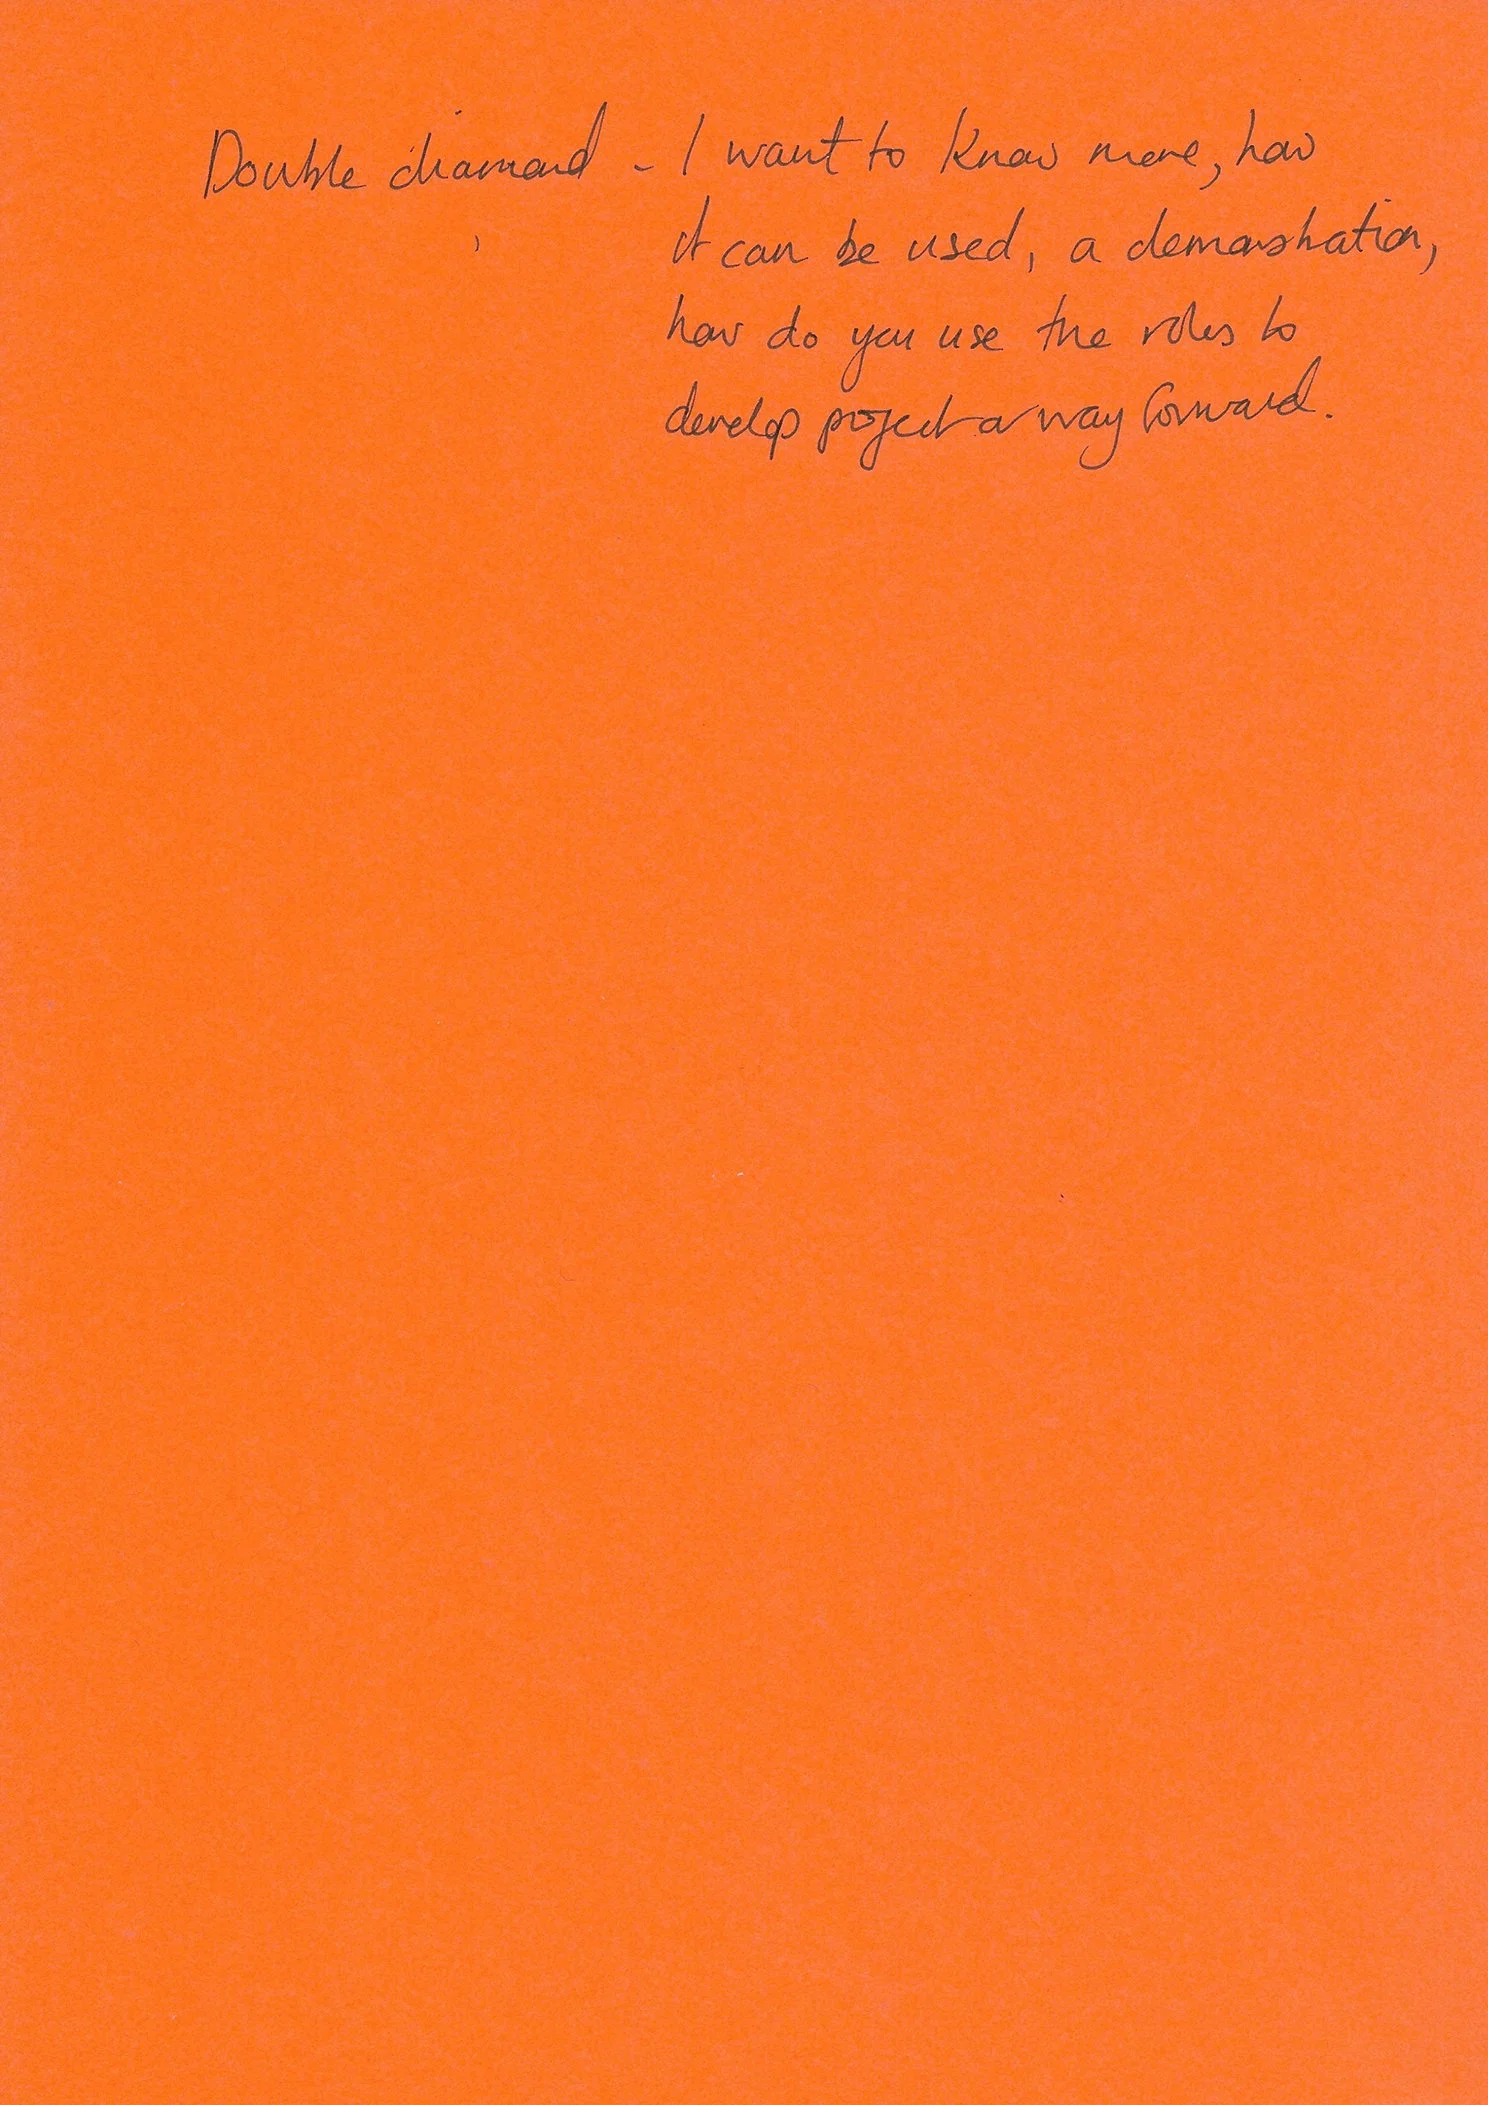 Double diamond - I want to know more, how
it can be used, a demonstration,
how do you use the roles to
develop project a way forward.